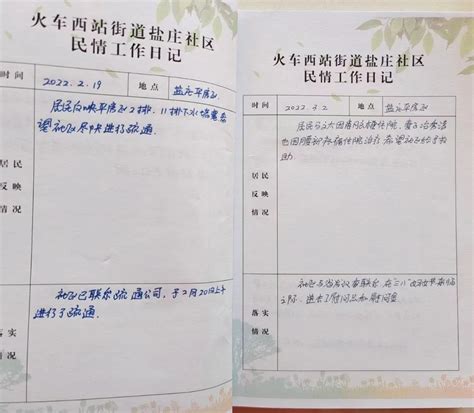 火车西站街道盐庄社区
民情工作日记
时间 2022.2.19 地点 盐庄平房区
居民反映平房区2排、11排下水堵塞希
望社区尽快进行疏通
居民
反映
情况
社区已联系疏通公司，于2月20日上午
进行了疏通。
落实
情况
火车西站街道盐庄社区
民情工作日记
时间 2022.3.2 地点 盐庄平房区
居民 因 住院，妻子
也因腰 住院治疗 希望社区给予救
助
居民
反映
情况
社区与 联系 在"三八"妇女节来临
之际，送去了慰问品和慰问金
落实
情况